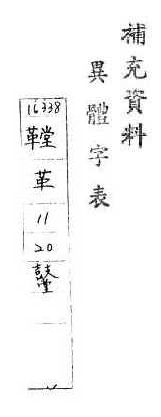 補充資料
異體字表
16338
鞺
革
11
20
鼞